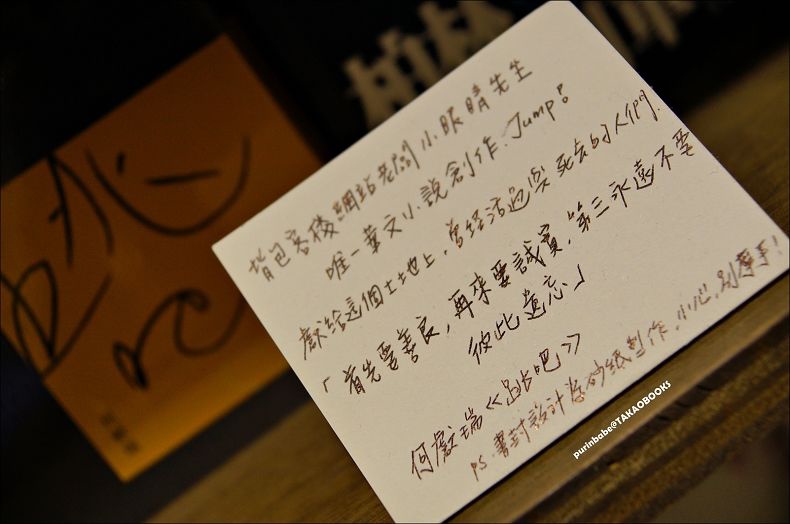 背包客棧網站老闆小眼睛先生
唯一華文小說創作, Jump!
獻給這個土地上, 曾經活過與死去的人們.
「首先要善良, 再來要誠實, 第三永遠不要
彼此遺忘」
何獻瑞《跳吧》
PS. 書封設計為砂紙製作, 小心別磨手!
purinbabe@TAKAOBOOKS